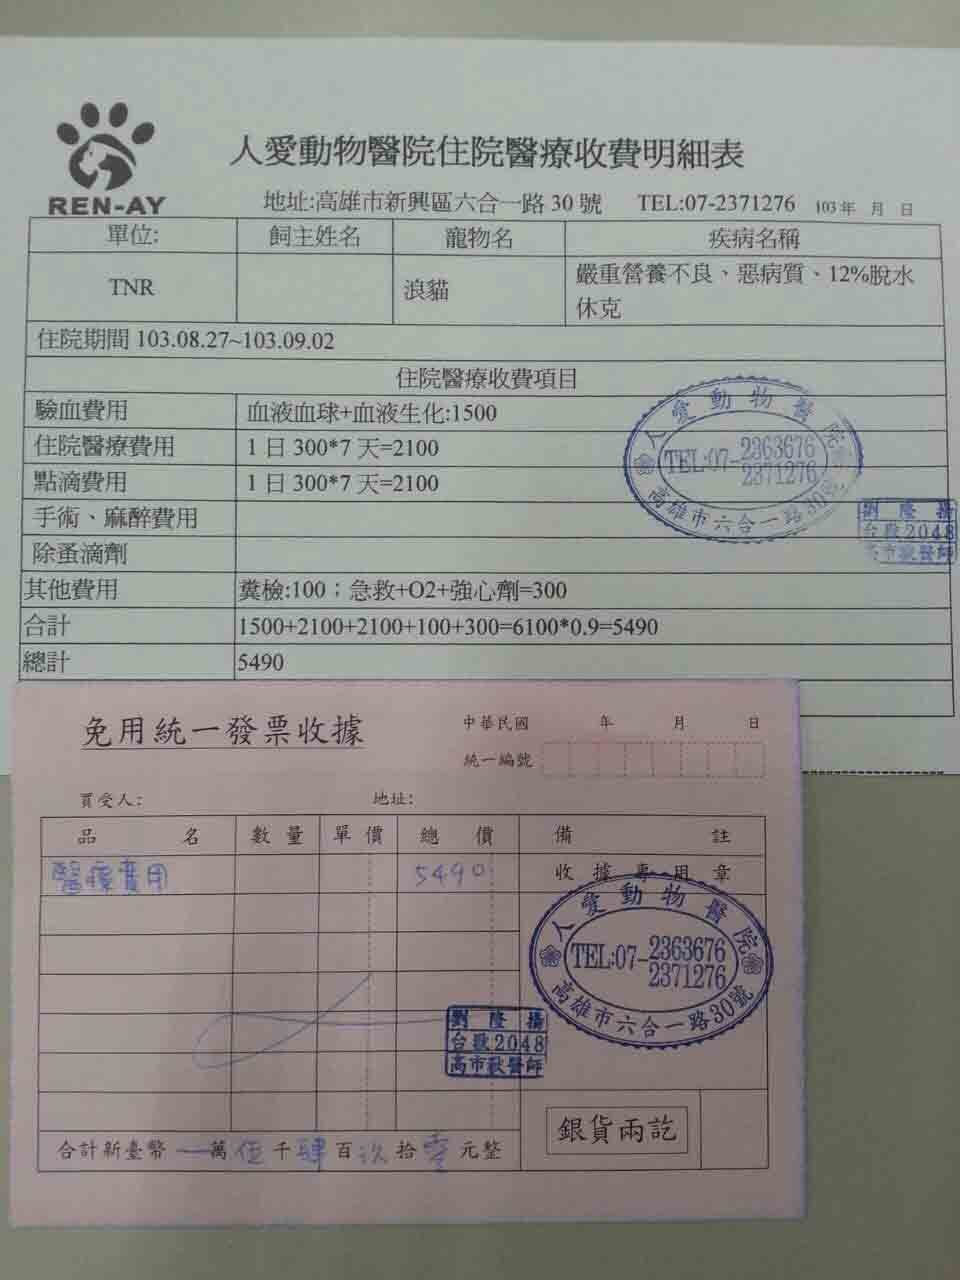 人愛動物醫院住院醫療收費明細表
REN-AY
地址:高雄市新興區六合一路 30 號 TEL:07-2371276 103 年 月 日
單位: 飼主姓名 寵物名 疾病名稱
TNR 浪貓 嚴重營養不良、惡病質、12%脫水
休克
住院期間 103.08.27~103.09.02
住院醫療收費項目
驗血費用 血液血球+血液生化:1500
住院醫療費用 1 日 300*7 天=2100
點滴費用 1 日 300*7 天=2100
手術、麻醉費用
除蚤滴劑
其他費用 糞檢:100；急救+O2+強心劑=300
合計 1500+2100+2100+100+300=6100*0.9=5490
總計 5490
人愛動物醫院
TEL:07-2363676
2371276
高雄市六合一路30號
劉隆揚
台獸2048
高市獸醫師
免用統一發票收據
中華民國 年 月 日
統一編號
買受人: 地址:
品名 數量 單價 總價 備註
醫療費用 5490 收據專用章
人愛動物醫院
TEL:07-2363676
2371276
高雄市六合一路30號
劉隆揚
台獸2048
高市獸醫師
合計新臺幣 萬伍千肆百玖拾零元整
銀貨兩訖